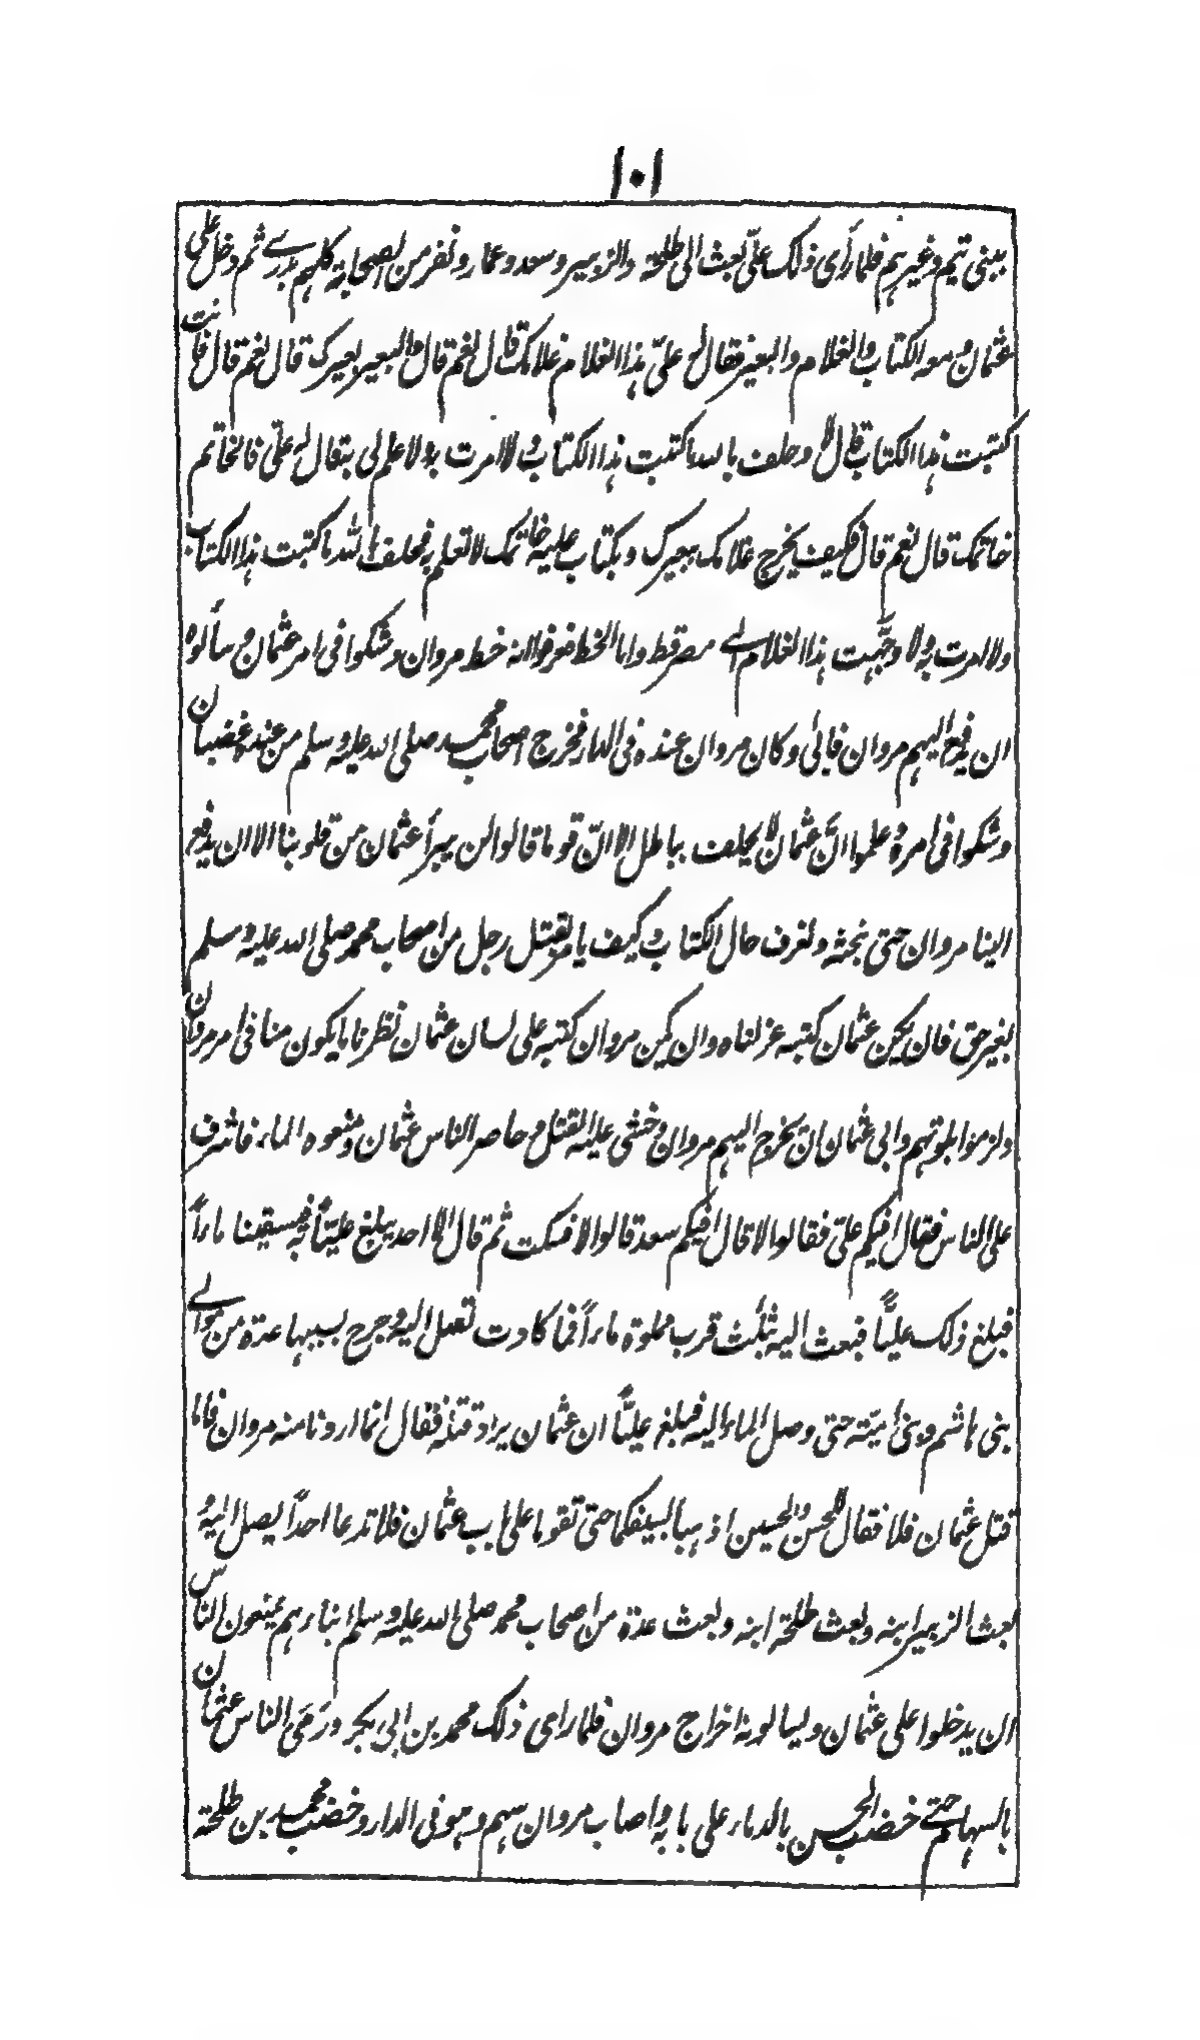 ١٠١
ببنی تیم وغیرہم فلما رأی ذلک علیّ بعث الی طلحۃ والزبیر وسعد وعمار ونفر من الصحابۃ کلہم بدرے ثم دخل علی
عثمان ومعہ الکتاب والغلام والبعیر فقال لہ علیّ ہذا الغلام غلامک قال نعم قال والبعیر بعیرک قال نعم قال فانت
کتبت ہذا الکتاب قال لا وحلف باللہ ما کتبت ہذا الکتاب ولا امرت بہ ولا علم لی بہ قال لہ علیّ فالخاتم
خاتمک قال نعم قال فکیف یخرج غلامک ببعیرک وبکتاب علیہ خاتمک لا تعلم بہ فحلف باللہ ما کتبت ہذا الکتاب
ولا امرت بہ ولا وجّہت ہذا الغلام الے مصر قط واما الخط فعرفوا انہ خط مروان وشکوا فی امر عثمان وسألوہ
ان یدفع الیہم مروان فابی وکان مروان عندہ فی الدار فخرج اصحاب محمد صلی اللہ علیہ وسلم من عندہ غضبان
وشکوا فی امرہ وعلموا انّ عثمان لا یحلف بباطل الا انّ قوما قالوا لن یبرأ عثمان من قلوبنا الا ان یدفع
الینا مروان حتی نبحثہ ونعرف حال الکتاب وکیف یامر بقتل رجل من اصحاب محمد صلی اللہ علیہ وسلم
بغیر حق فان یکن عثمان کتبہ عزلناہ وان یکن مروان کتبہ علی لسان عثمان نظرنا ما یکون منا فی امر مروان
ولزموا بیوتہم وابی عثمان ان یخرج الیہم مروان وخشی علیہ القتل وحاصر الناس عثمان ومنعوہ الماء فاشرف
علی الناس فقال افیکم علیّ فقالوا لا قال افیکم سعد قالوا لا فسکت ثم قال الا احد یبلغ علیّاً فیسقینا ماءاً
فبلغ ذلک علیّاً فبعث الیہ بثلث قرب مملوۃ ماءاً فما کادت تصل الیہ وجرح بسببہا عدۃ من موالے
بنی ہاشم وبنی امیّۃ حتی وصل الماء الیہ فبلغ علیّاً ان عثمان یراد قتلہ فقال انما اردنا منہ مروان فاما
قتل عثمان فلا فقال للحسن والحسین اذہبا بسیفکما حتی تقوما علی باب عثمان فلا تدعا احداً یصل الیہ و
بعث الزبیر ابنہ وبعث طلحۃ ابنہ وبعث عدۃ من اصحاب محمد صلی اللہ علیہ وسلم ابناءہم یمنعون الناس
ان یدخلوا علی عثمان ویسالونہ اخراج مروان فلما رای ذلک محمد بن ابی بکر ورَمَی الناس عثمان
بالسہام حتے خضب الحسن بالدماء علی بابہ واصاب مروان سہم وہو فی الدار وخضب محمد بن طلحۃ